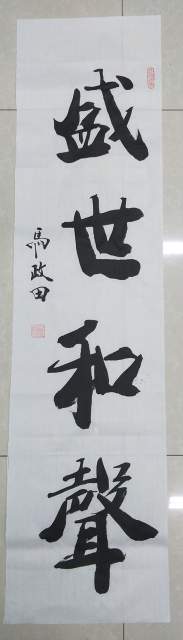 盛世和聲
馬政田